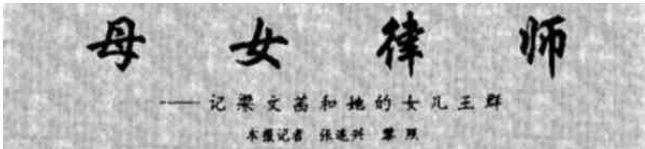 母女律师
——记梁文茵和她的女儿王群
本报记者 张连兴 黎照